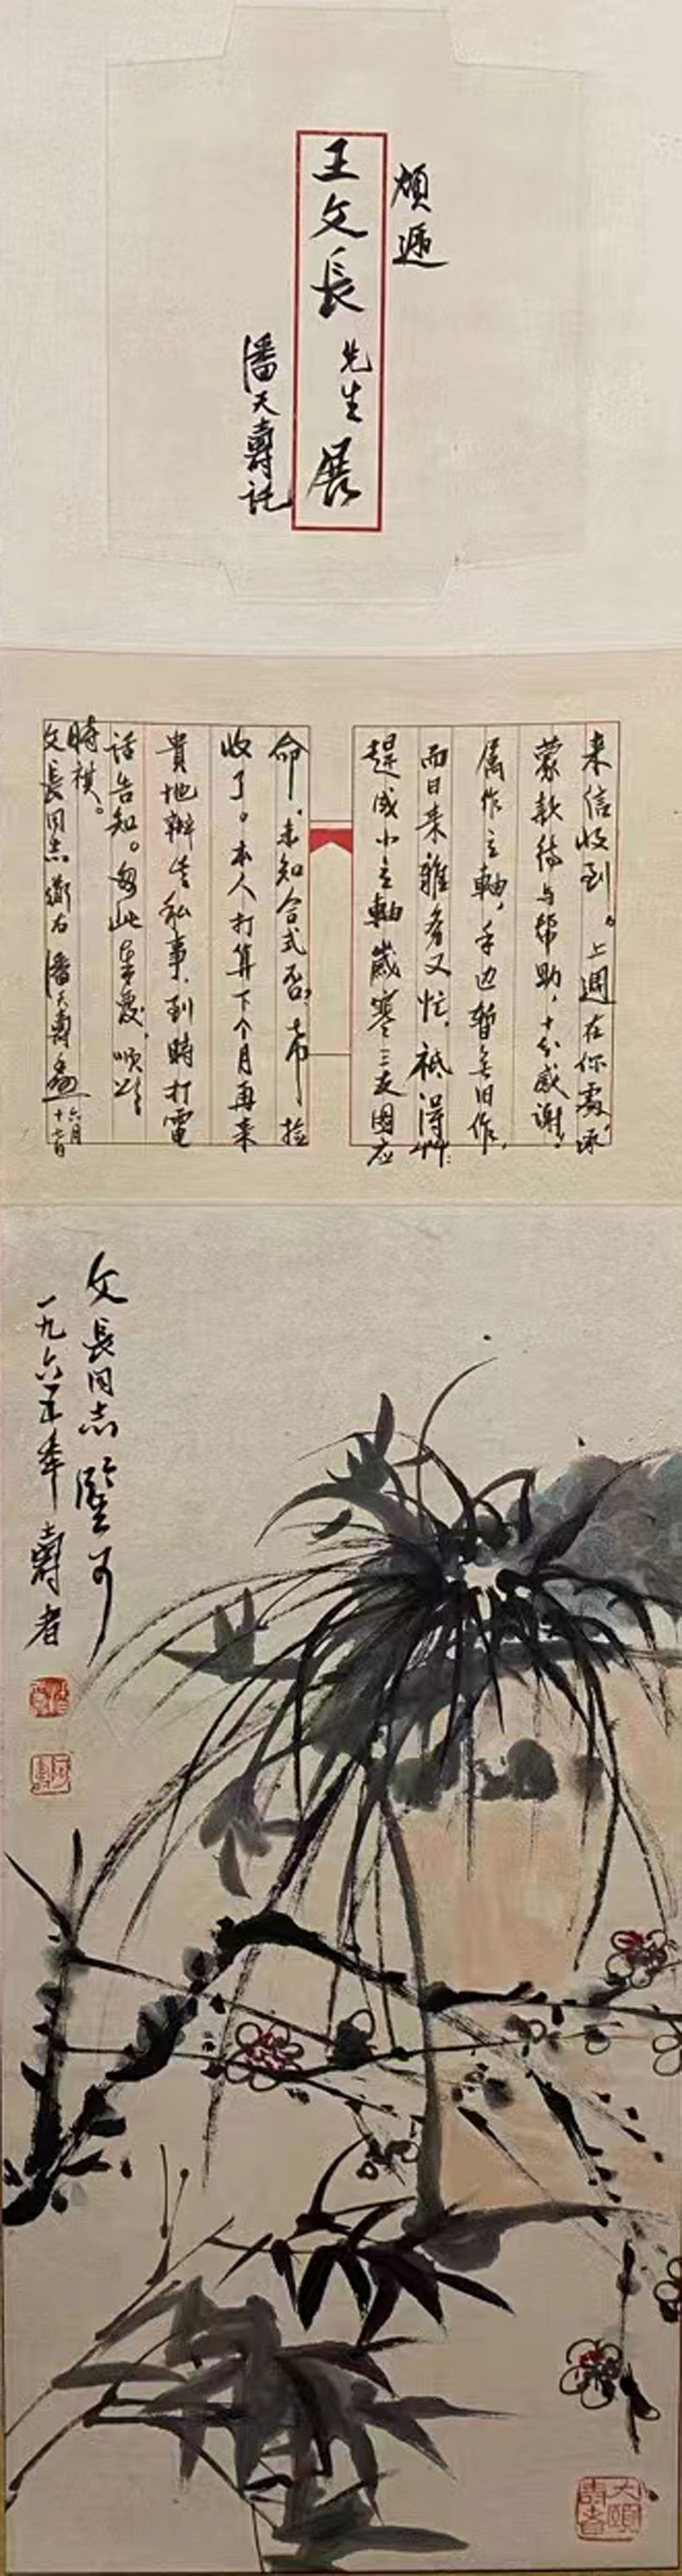 煩遞
王文長先生展
潘天壽託
来信收到。上週在你處,承
蒙款待与帮助,十分感謝!
属作立軸,手边暂無旧作,
而日来雜務又忙,祇得艸艸
趕成小立軸歲寒三友图应
命,未知合式否?希检
收了。本人打算下个月再来
貴地辦些私事,到時打電
話告知。匆此奉覆,順頌
時祺。
文長同志 潘天壽
六月
十六日
文長同志鑒可
一九六一年 壽者
大頤
壽者